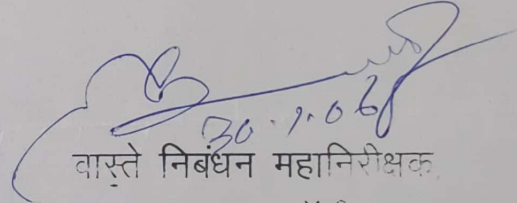 30.1.06
वास्ते निबंधन महानिरीक्षक